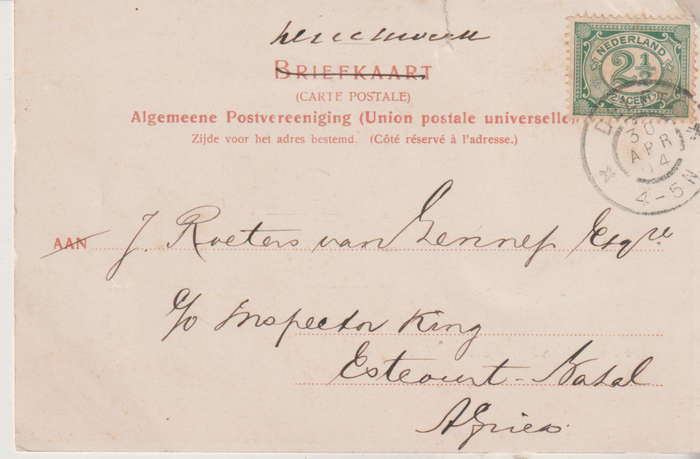 BRIEFKAART
(CARTE POSTALE)
Algemeene Postvereeniging (Union postale universelle)
Zijde voor het adres bestemd. (Côté réservé à l'adresse.)
NEDERLAND
2½
CENT
30
APR
04
4-5N
AAN J. Roeters van Gennep Esqre
c/o Inspector King
Estcourt-Natal
Africa